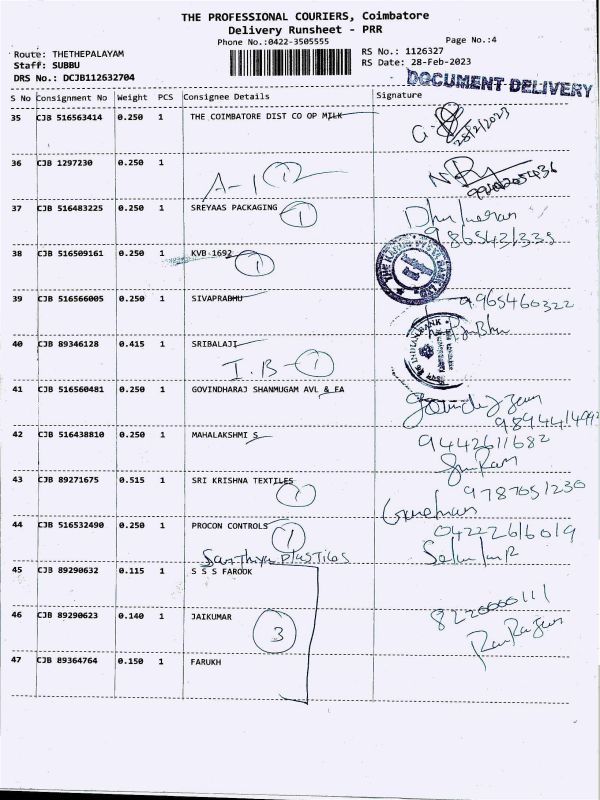 THE PROFESSIONAL COURIERS, Coimbatore
Delivery Runsheet - PRR
Phone No.:0422-3505555
Page No.:4
Route: THETHEPALAYAM
RS No.: 1126327
Staff: SUBBU
RS Date: 28-Feb-2023
DRS No.: DCJB112632704
DOCUMENT DELIVERY
S No Consignment No Weight PCS Consignee Details Signature
35 CJB 516563414 0.250 1 THE COIMBATORE DIST CO OP MILK
28/2/2023
36 CJB 1297230 0.250 1
A-1 1
37 CJB 516483225 0.250 1 SREYAAS PACKAGING 1
38 CJB 516509161 0.250 1 KVB-1692 1
39 CJB 516566005 0.250 1 SIVAPRABHU
9965460322
40 CJB 89346128 0.415 1 SRIBALAJI
INDIAN BANK
I.B - 1
41 CJB 516560481 0.250 1 GOVINDHARAJ SHANMUGAM AVL & EA
42 CJB 516438810 0.250 1 MAHALAKSHMI S
9442611682
43 CJB 89271675 0.515 1 SRI KRISHNA TEXTILES 1
9787051230
44 CJB 516532490 0.250 1 PROCON CONTROLS 1
04222616019
Santhiya plastiks
45 CJB 89290632 0.115 1 S S S FAROOK
8220000111
46 CJB 89290623 0.140 1 JAIKUMAR
3
47 CJB 89364764 0.150 1 FARUKH